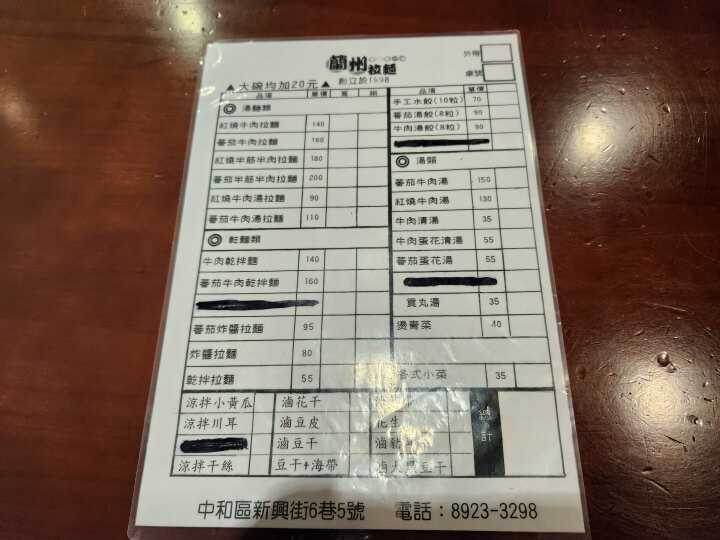 外帶
蘭州拉麵
桌號
創立於1998
▲大碗均加20元▲
品項 單價 寬 細
◎湯麵類
紅燒牛肉拉麵 140
蕃茄牛肉拉麵 160
紅燒半筋半肉拉麵 180
蕃茄半筋半肉拉麵 200
紅燒牛肉湯拉麵 90
蕃茄牛肉湯拉麵 110
◎乾麵類
牛肉乾拌麵 140
蕃茄牛肉乾拌麵 160
蕃茄炸醬拉麵 95
炸醬拉麵 80
乾拌拉麵 55
品項 單價
手工水餃(10粒) 70
蕃茄湯餃(8粒) 90
牛肉湯餃(8粒) 90
◎湯類
蕃茄牛肉湯 150
紅燒牛肉湯 130
牛肉清湯 35
牛肉蛋花清湯 55
蕃茄蛋花湯 55
貢丸湯 35
燙青菜 40
各式小菜 35
涼拌小黃瓜 滷花干
涼拌川耳 滷豆皮 花生
滷豆干
涼拌干絲 豆干+海帶 豆干
總計
中和區新興街6巷5號 電話:8923-3298